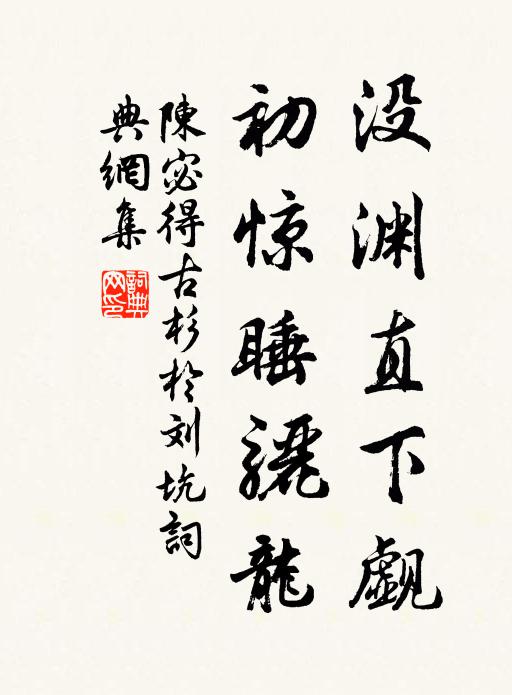 没渊直下觑
初惊睡骊龙
陳宓得古杉於刘坑詞
典網集
詞典网印